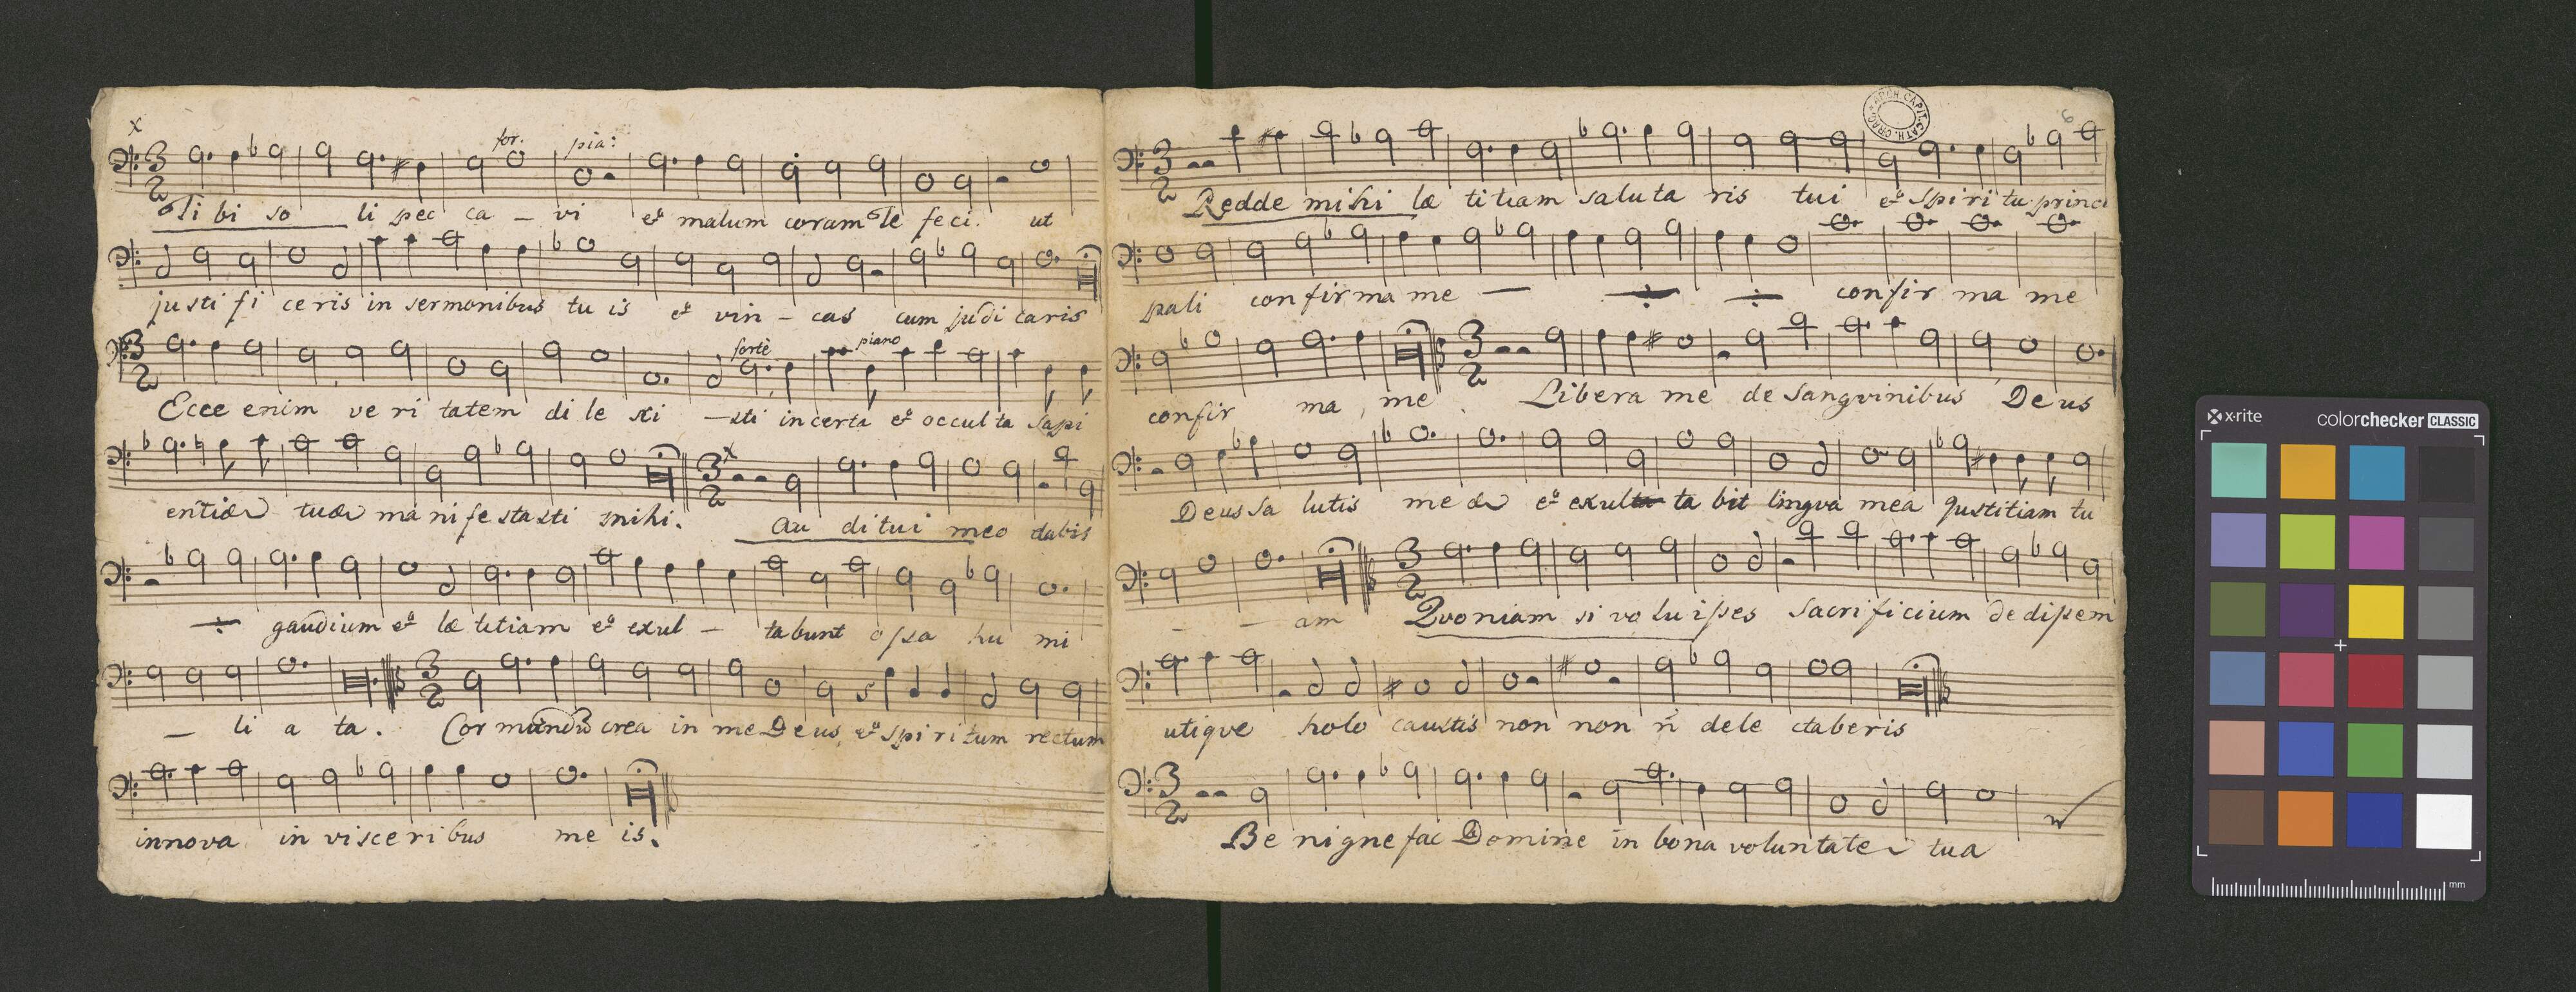 x
for. pia:
Tibi so li pec ca – vi et malum coram Te feci. ut
justi fi ceris in sermonibus tu is et vin – cas cum judi caris
fortè piano
Ecce enim ve ri tatem di le xi – sti incerta et occulta sapi
x
entiæ tuæ ma ni fe sta sti mihi. Au ditui meo dabis
÷ gaudium et læ titiam et exul – tabunt ossa hu mi
– li a ta. Cor mundū crea in me Deus, et spi ri tum rectum
innova in visce ri bus me is.
6
ARCH. CAPIT. CATH. CRAC.
Redde mihi læ titiam saluta ris tui et Spi ri tu princi
pali confirma me — ÷ ÷ confir ma me
confir ma me. Libera me de Sangvinibus Deus
Deus Sa lutis me æ et exul ta bit lingva mea Justitiam tu
– – am Qvoniam si vo lu isses Sacrificium dedissem
utiqve holo caustis non non n̄ dele ctaberis
Be nigne fac Domine in bona voluntate tua
x-rite colorchecker CLASSIC
mm